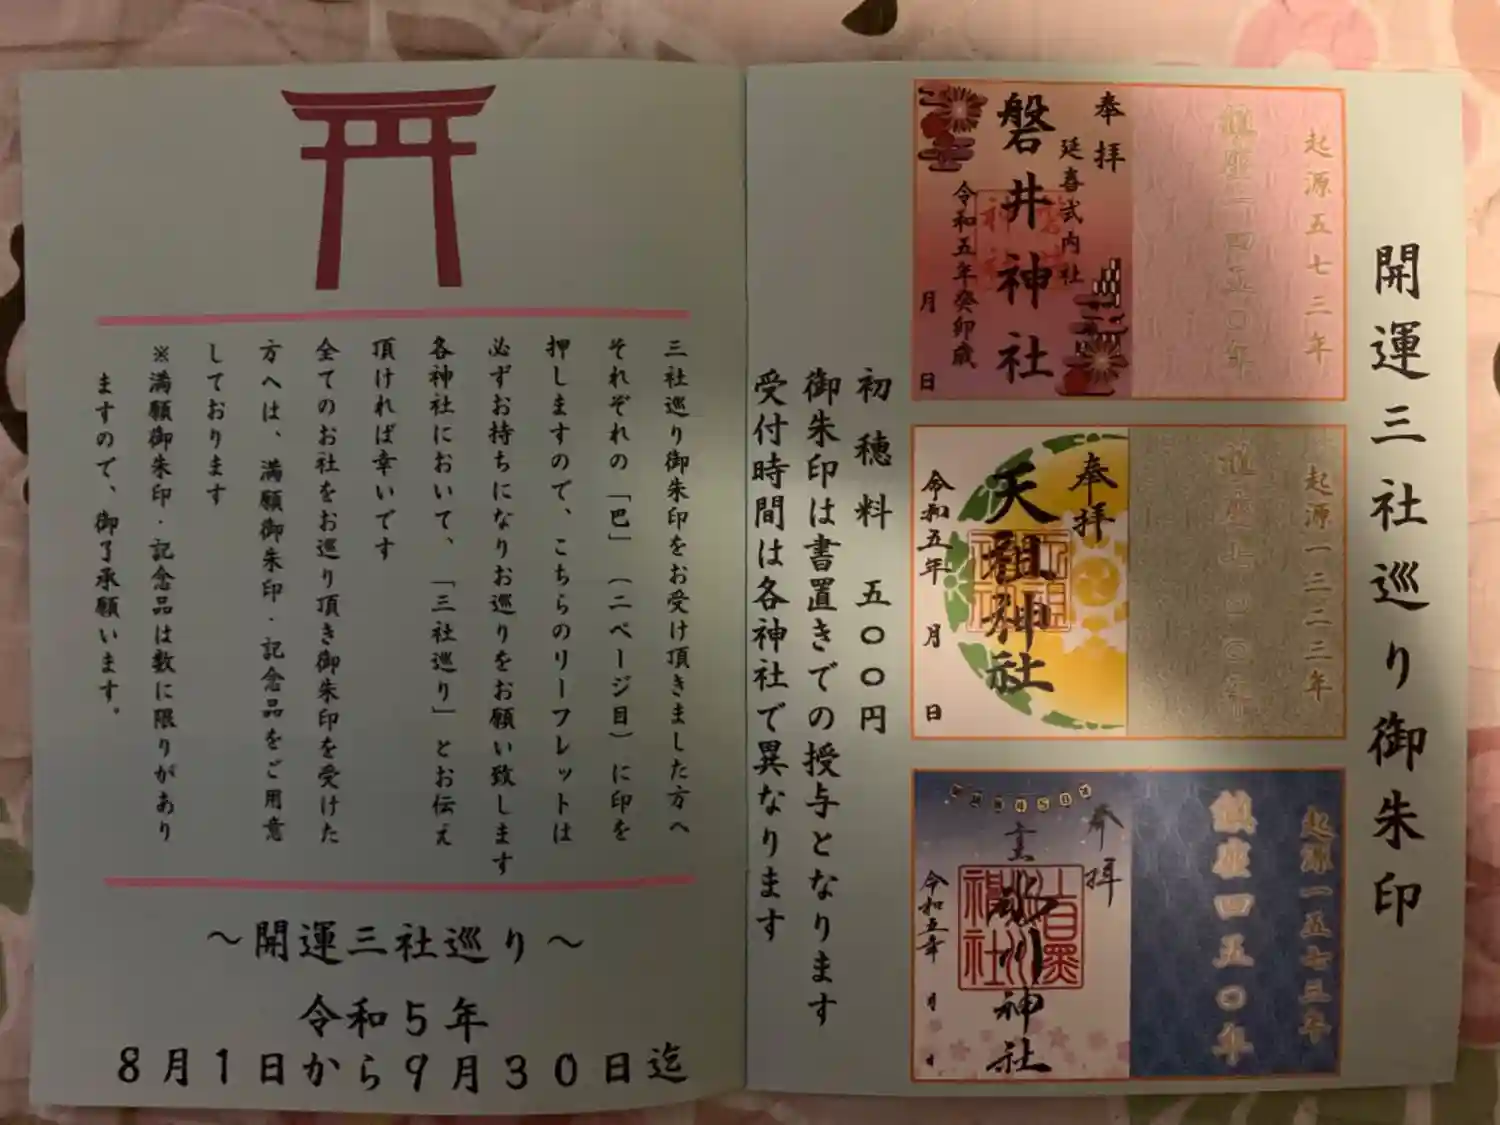 開運三社巡り御朱印
起源五七三年
鎮座一四五〇年
奉拝
延喜式内社
磐井神社
令和五年癸卯歳
月 日
起源一二二三年
鎮座
奉拝
天祖神社
令和五年 月 日
起源一五七三年
鎮座四五〇年
奉拝
上目黒
氷川神社
令和五年 月 日
初穂料 五〇〇円
御朱印は書置きでの授与となります
受付時間は各神社で異なります
三社巡り御朱印をお受け頂きました方へ
それぞれの「巴」(二ページ目)に印を
押しますので、こちらのリーフレットは
必ずお持ちになりお巡りをお願い致します
各神社において、「三社巡り」とお伝え
頂ければ幸いです
全てのお社をお巡り頂き御朱印を受けた
方へは、満願御朱印・記念品をご用意
しております
※満願御朱印・記念品は数に限りがあり
ますので、御了承願います。
～開運三社巡り～
令和5年
8月1日から9月30日迄